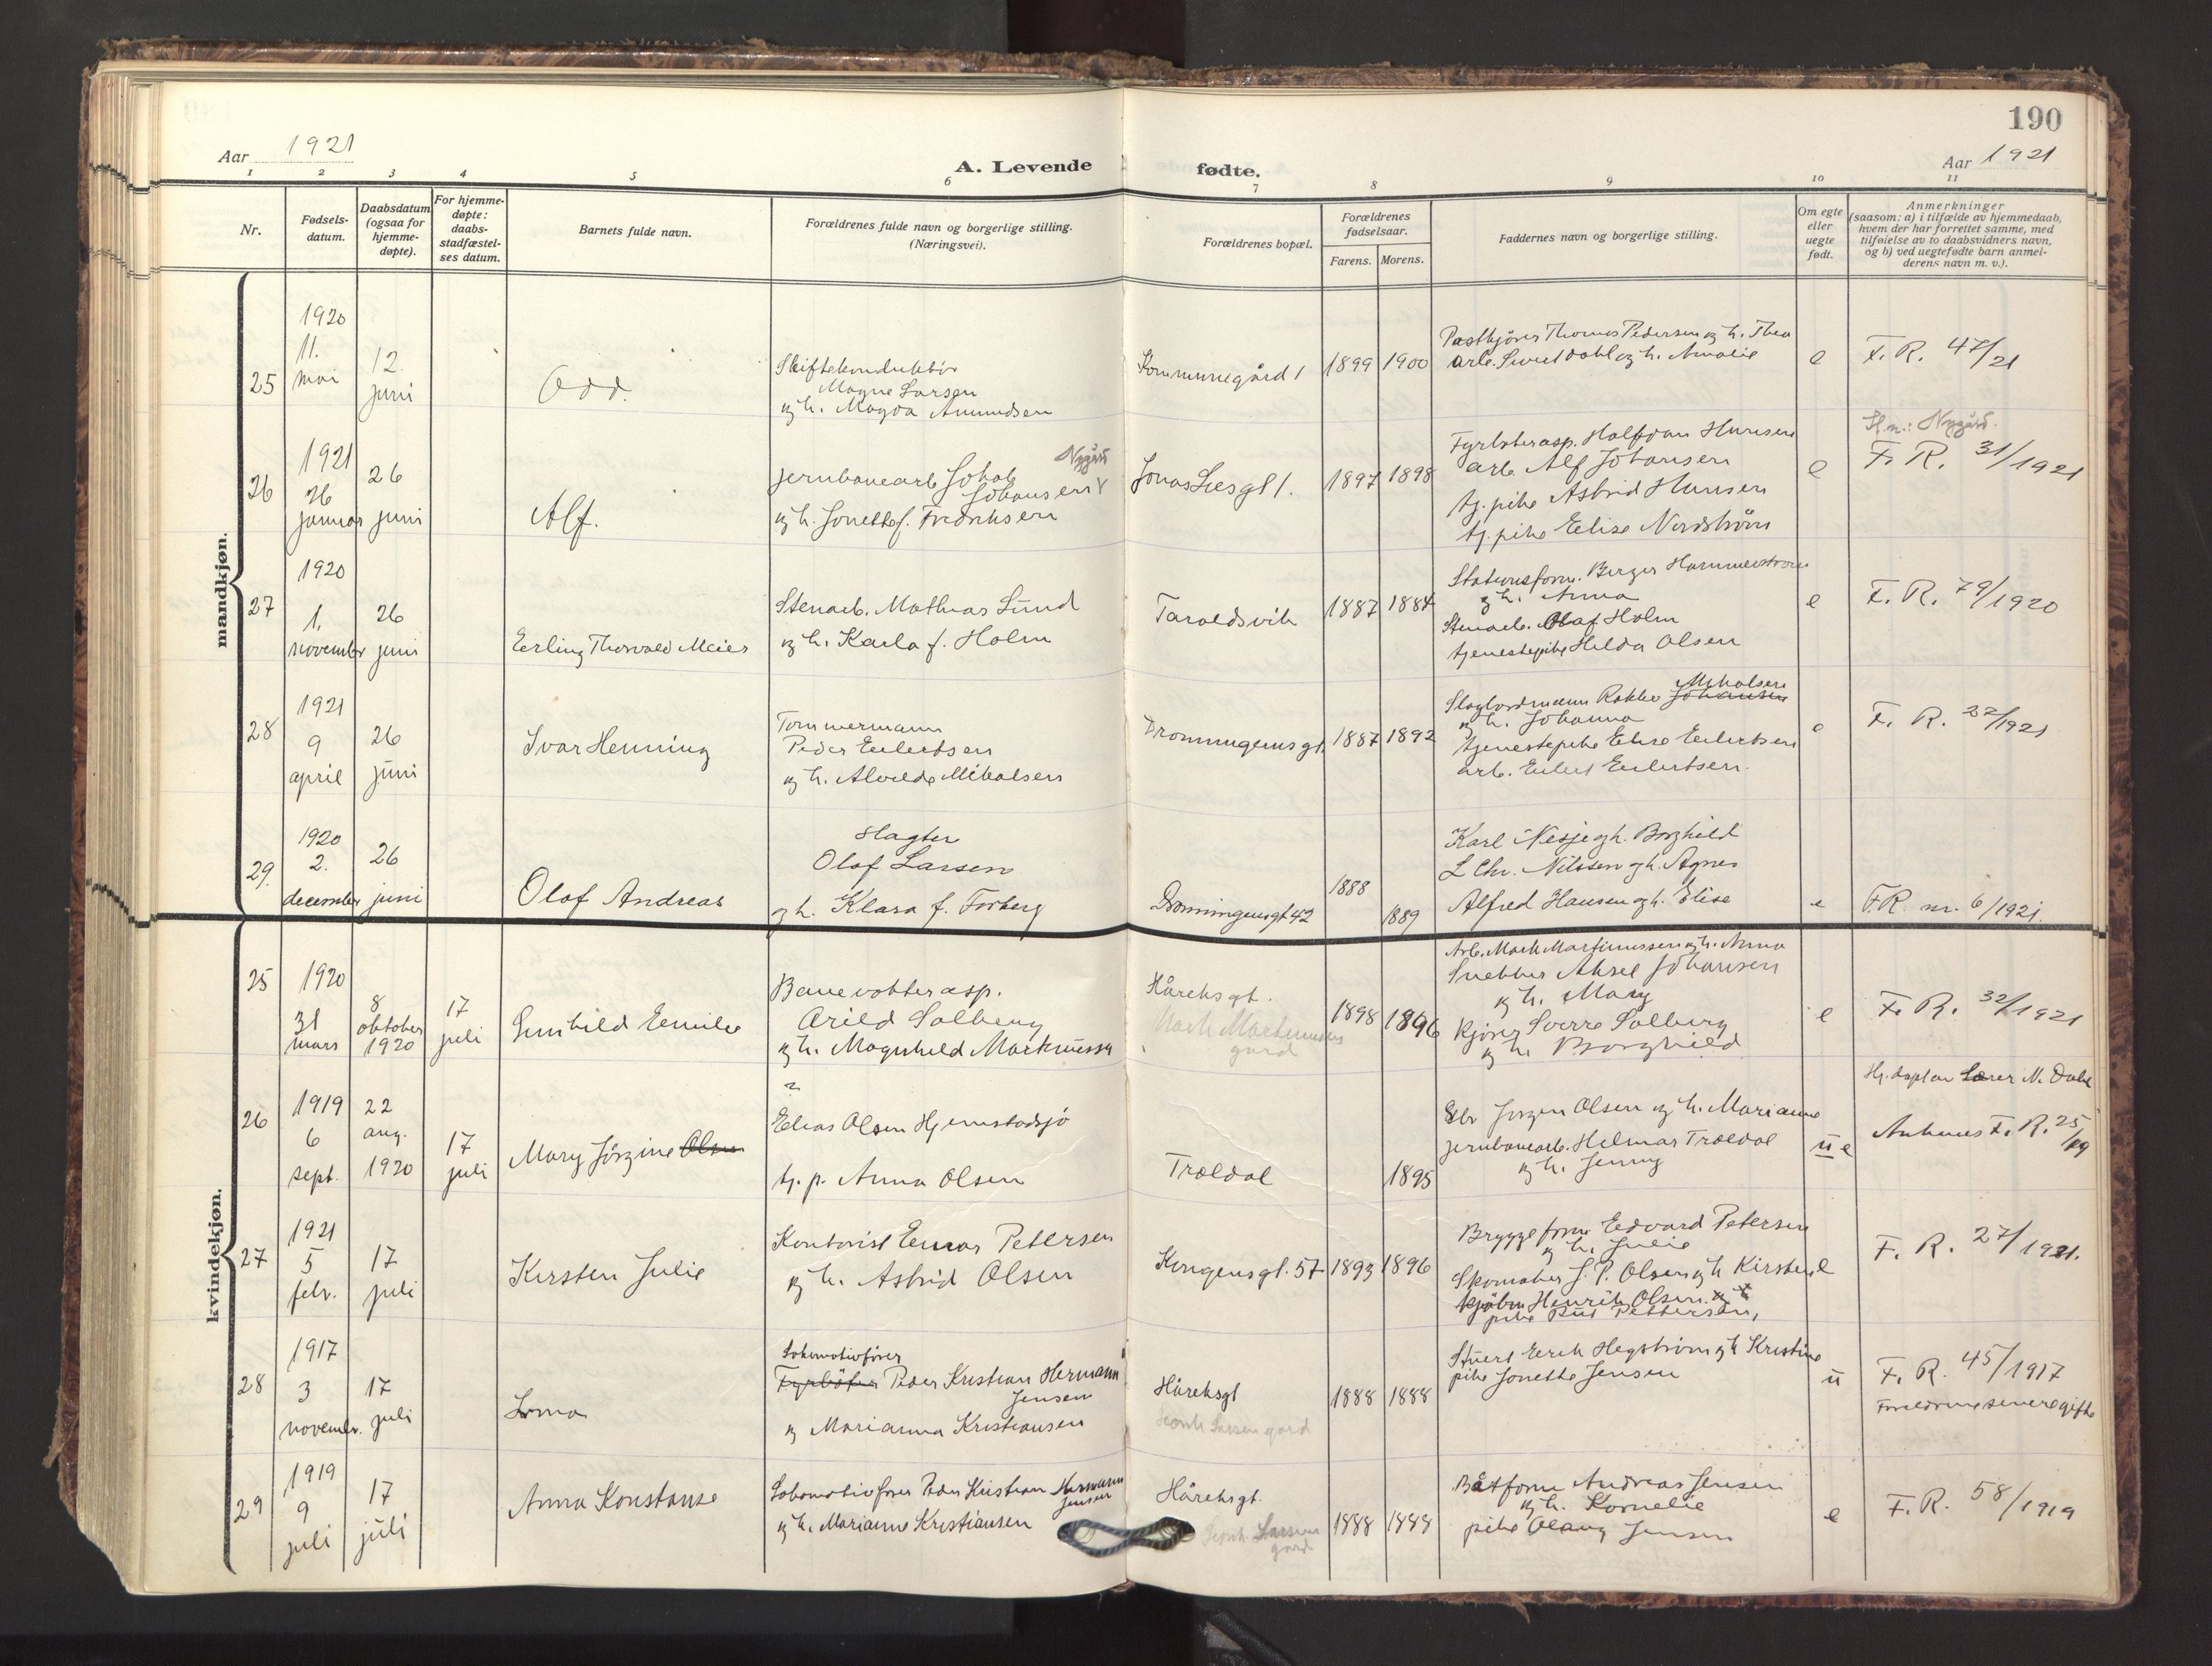 190
Aar 1921
A. Levende fødte.
Aar 1921
1 2 3 4 5 6 7 8 9 10 11
Nr.
Fødsels-
datum.
Daabsdatum
(ogsaa for
hjemme-
døpte).
For hjemme-
døpte:
daabs-
stadfæstel-
ses datum.
Barnets fulde navn.
Forældrenes fulde navn og borgerlige stilling.
(Næringsvei).
Forældrenes bopæl.
Forældrenes
fødselsaar.
Farens. Morens.
Faddernes navn og borgerlige stilling.
Om egte
eller
uegte
født.
Anmerkninger
(saasom: a) i tilfælde av hjemmedaab,
hvem der har forrettet samme, med
tilføielse av to daabsvidners navn,
og b) ved uegtefødte barn anmel-
derens navn m. v.).
mandkjøn.
25
1920
11.
mai
12.
juni
Odd.
Skiftekonduktør
Magne Larsen
og h. Magda Amundsen
Kommunegård 1
1899 1900
Postkjører Thomas Pedersen og h. Thea
arb. Sivert Dahl og h. Amalie
e
F. R. 47/21
26
1921
26
januar
26
juni
Alf.
Nygård
jernbanearb Johab
Johansen
og h. Jonette f. Fredriksen
Jonas Liesgt 1.
1897 1898
Fyrbøterasp. Halfdan Hansen
arb. Alf Johansen
tj. pike Astrid Hansen
tj. pike Elise Nordstrøm
e
S.n.: Nygård.
F. R. 31/1921
27
1920
1.
november
26
juni
Erling Thorvald Meier
Stenarb. Mathias Lund
og h. Karla f. Holm
Taraldsvik
1887 1884
Stationsform. Berger Hammerstrøm
og h. Anna
Stenarb. Olaf Holm
tjenestepike Hilda Olsen
e
F. R. 79/1920
28
1921
9
april
26
juni
Ivar Henning
Tommermann
Peder Eilertsen
og h. Alvilde Mikalsen
Dronningensgt.
1887 1892
Mikalsen
Johansen
og h. Johanna
tjenestepike Elise Eilertsen
arb. Eilert Eilertsen.
e
F. R. 22/1921
29.
1920
2.
december
26
juni
Olaf Andreas
slagter
Olaf Larsen
og h. Klara f. Forberg
Dronningensgt 42
1888
1889
Karl Nesje og h. Borghild
L Chr. Nilssen og h. Agnes
Alfred Hansen og h. Elise
e
F.R. nr. 6/1921.
kvindekjøn.
25
1920
31
mars
8
oktober
1920
17
juli
Gunhild Emilie
Banevokterasp.
Arild Solberg
og h. Magnhild Martinussen
Håreksgt.
Mack Martinussens
gard
1898 1896
Arb. Mack Martinussen og h. Anna
Snekker Aksel Johansen
og h. Mary
Kjører Sverre Solberg
og h. Borghild
e
F. R. 32/1921
26
1919
6
sept.
22
aug.
1920
17
juli
Mary Jörgine Olsen
Elias Olsen Hjemstadsjö
tj. p. Anna Olsen
Trældal
1895
Jørgen Olsen og h. Marianne
jernbanearb. Helmar Trældal
og h. Jenny
u e
Hj. døpt av Lærer N. Dahl
F. R. 25/19
27
1921
5
febr.
17
juli
Kirsten Julie
Kontorist Einar Petersen
og h. Astrid Olsen
Kongensgt. 57
1893 1896
Bryggeform Edvard Petersen
og h. Julie
Skomaker J. P. Olsen og h Kirsten
kjøbm Henrik Olsen
pike Rut Pettersen,
e
F. R. 27/1921.
28
1917
3
november.
17
juli
Irma
Lokomotivfører
Fyrbøter Peder Kristian Hermann
Jensen
og Marianna Kristiansen
Håreksgt
Larsen gard
1888 1888
Stuert Erik Hegstrøm og h Kristine
pike Jonette Jensen
u
F. R. 45/1917
Foreldrene senere gifte
29
1919
9
juli
17
juli
Anna Konstanse
Lokomotivfører Peder Kristian Hermann
Jensen
og h. Marianne Kristiansen
Håreksgt.
Larsens
gard
1888 1888
Båtform Andreas Jensen
og h. Kornelie
pike Olaug Jensen
e
F. R. 58/1919